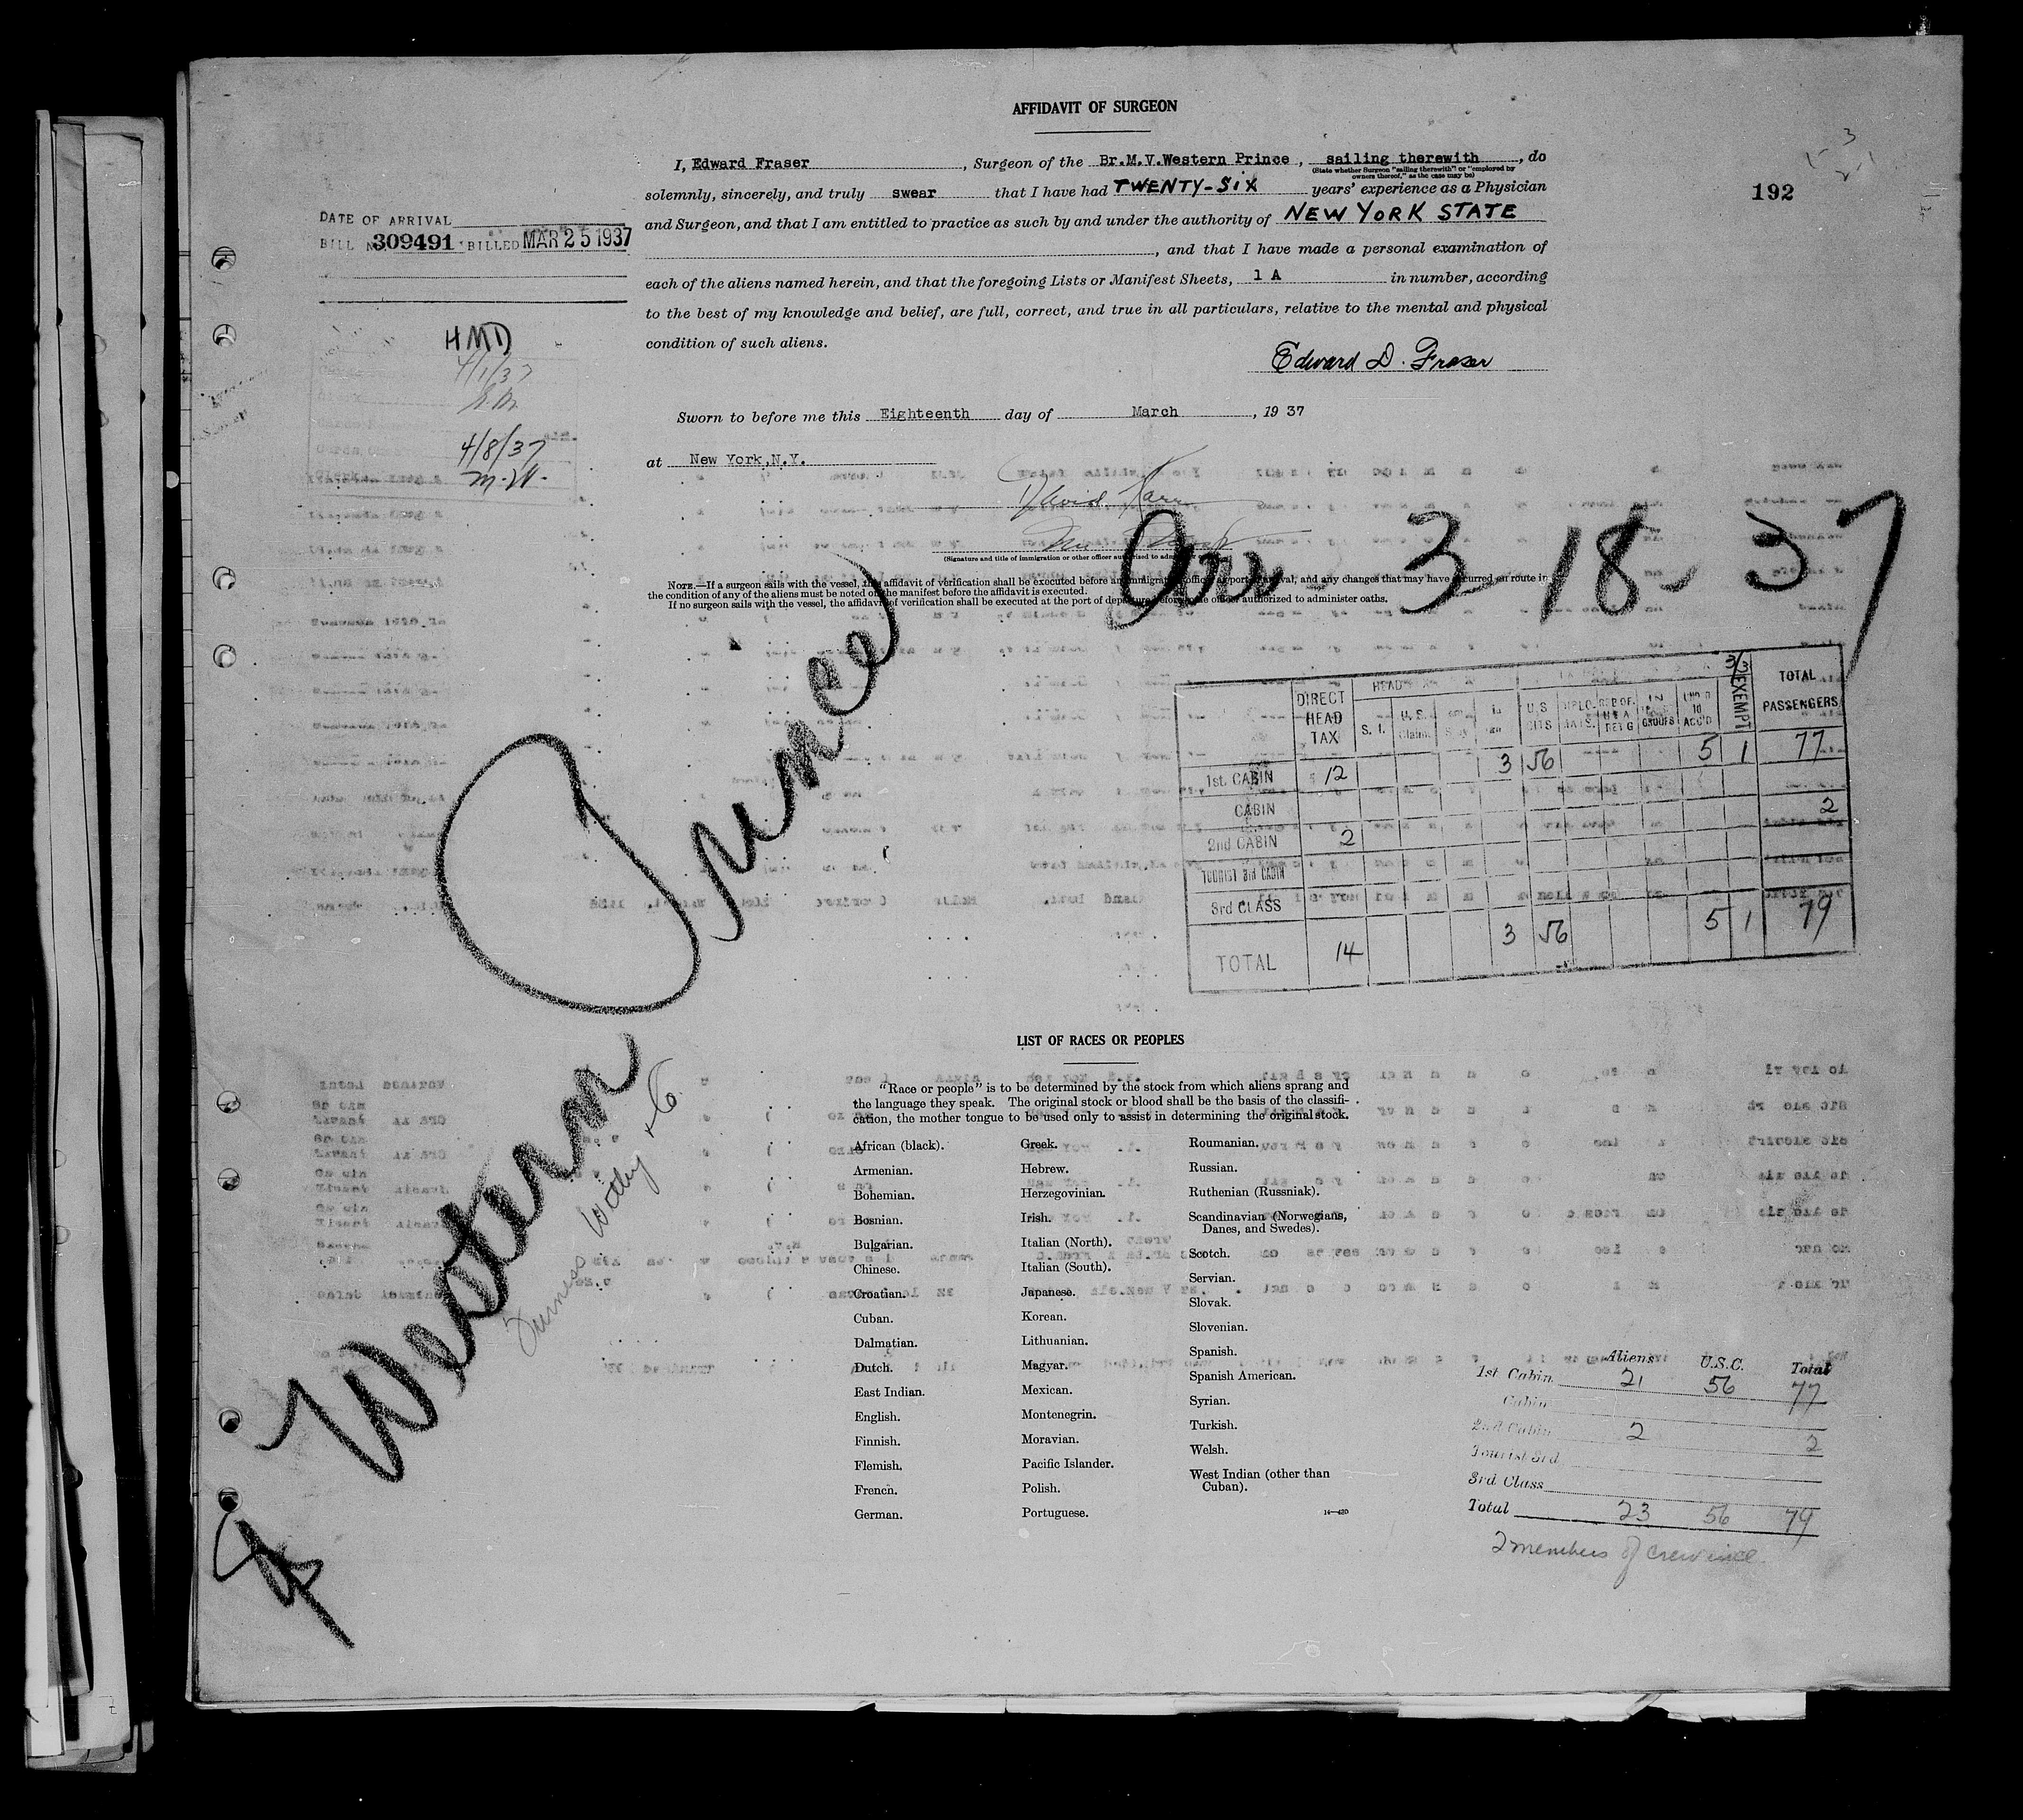 AFFIDAVIT OF SURGEON
I, Edward Fraser, Surgeon of the Br.M.V.Western Prince, sailing therewith, do
(State whether Surgeon "sailing therewith" or "employed by
owners thereof," as the case may be)
solemnly, sincerely, and truly swear that I have had TWENTY-SIX years' experience as a Physician
192
and Surgeon, and that I am entitled to practice as such by and under the authority of NEW YORK STATE
, and that I have made a personal examination of
each of the aliens named herein, and that the foregoing Lists or Manifest Sheets, 1 A in number, according
to the best of my knowledge and belief, are full, correct, and true in all particulars, relative to the mental and physical
condition of such aliens.
Edward D. Fraser
DATE OF ARRIVAL
BILL No. 309491 BILLED MAR 25 1937
HMD
4/1/37
4/8/37
M.W.
Sworn to before me this Eighteenth day of March, 19 37
at New York,N.Y.
David
(Signature and title of immigration or other officer authorized to administer oaths)
NOTE.—If a surgeon sails with the vessel, this affidavit of verification shall be executed before an immigration officer at port of arrival, and any changes that may have occurred en route in
the condition of any of the aliens must be noted on the manifest before the affidavit is executed.
If no surgeon sails with the vessel, the affidavit of verification shall be executed at the port of departure before some officer authorized to administer oaths.
Arr - 3 - 18 - 37
Western Prince
Furness Withy & Co.
3/3
DIRECT HEAD TAX HEAD S. I. U. S. Claim. U.S CITS DIPLO-MATS. GROUFS EXEMPT TOTAL PASSENGERS
1st. CABIN 12 3 56 5 1 77
CABIN 2
2nd CABIN 2
TOURIST 3rd CABIN
3rd CLASS
TOTAL 14 3 56 5 1 79
LIST OF RACES OR PEOPLES
"Race or people" is to be determined by the stock from which aliens sprang and
the language they speak. The original stock or blood shall be the basis of the classifi-
cation, the mother tongue to be used only to assist in determining the original stock.
African (black).
Armenian.
Bohemian.
Bosnian.
Bulgarian.
Chinese.
Croatian.
Cuban.
Dalmatian.
Dutch.
East Indian.
English.
Finnish.
Flemish.
French.
German.
Greek.
Hebrew.
Herzegovinian.
Irish.
Italian (North).
Italian (South).
Japanese.
Korean.
Lithuanian.
Magyar.
Mexican.
Montenegrin.
Moravian.
Pacific Islander.
Polish.
Portuguese.
Roumanian.
Russian.
Ruthenian (Russniak).
Scandinavian (Norwegians,
Danes, and Swedes).
Scotch.
Servian.
Slovak.
Slovenian.
Spanish.
Spanish American.
Syrian.
Turkish.
Welsh.
West Indian (other than
Cuban).
14—420
Aliens U.S.C. Total
1st Cabin 21 56 77
Cabin
2nd Cabin 2 2
Tourist 3rd
3rd Class
Total 23 56 79
2 members of crew incl.